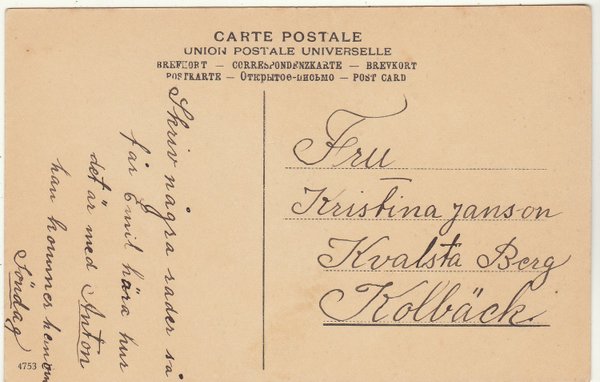 CARTE POSTALE
UNION POSTALE UNIVERSELLE
BREFKORT — CORRESPONDENZKARTE — BREVKORT
POSTKARTE — Открытое-письмо — POST CARD
Skriv några rader så
får Emil höra hur
det är med Anton
han kommer hem om
Söndag
Fru
Kristina Janson
Kvalsta Berg
Kolbäck
4753